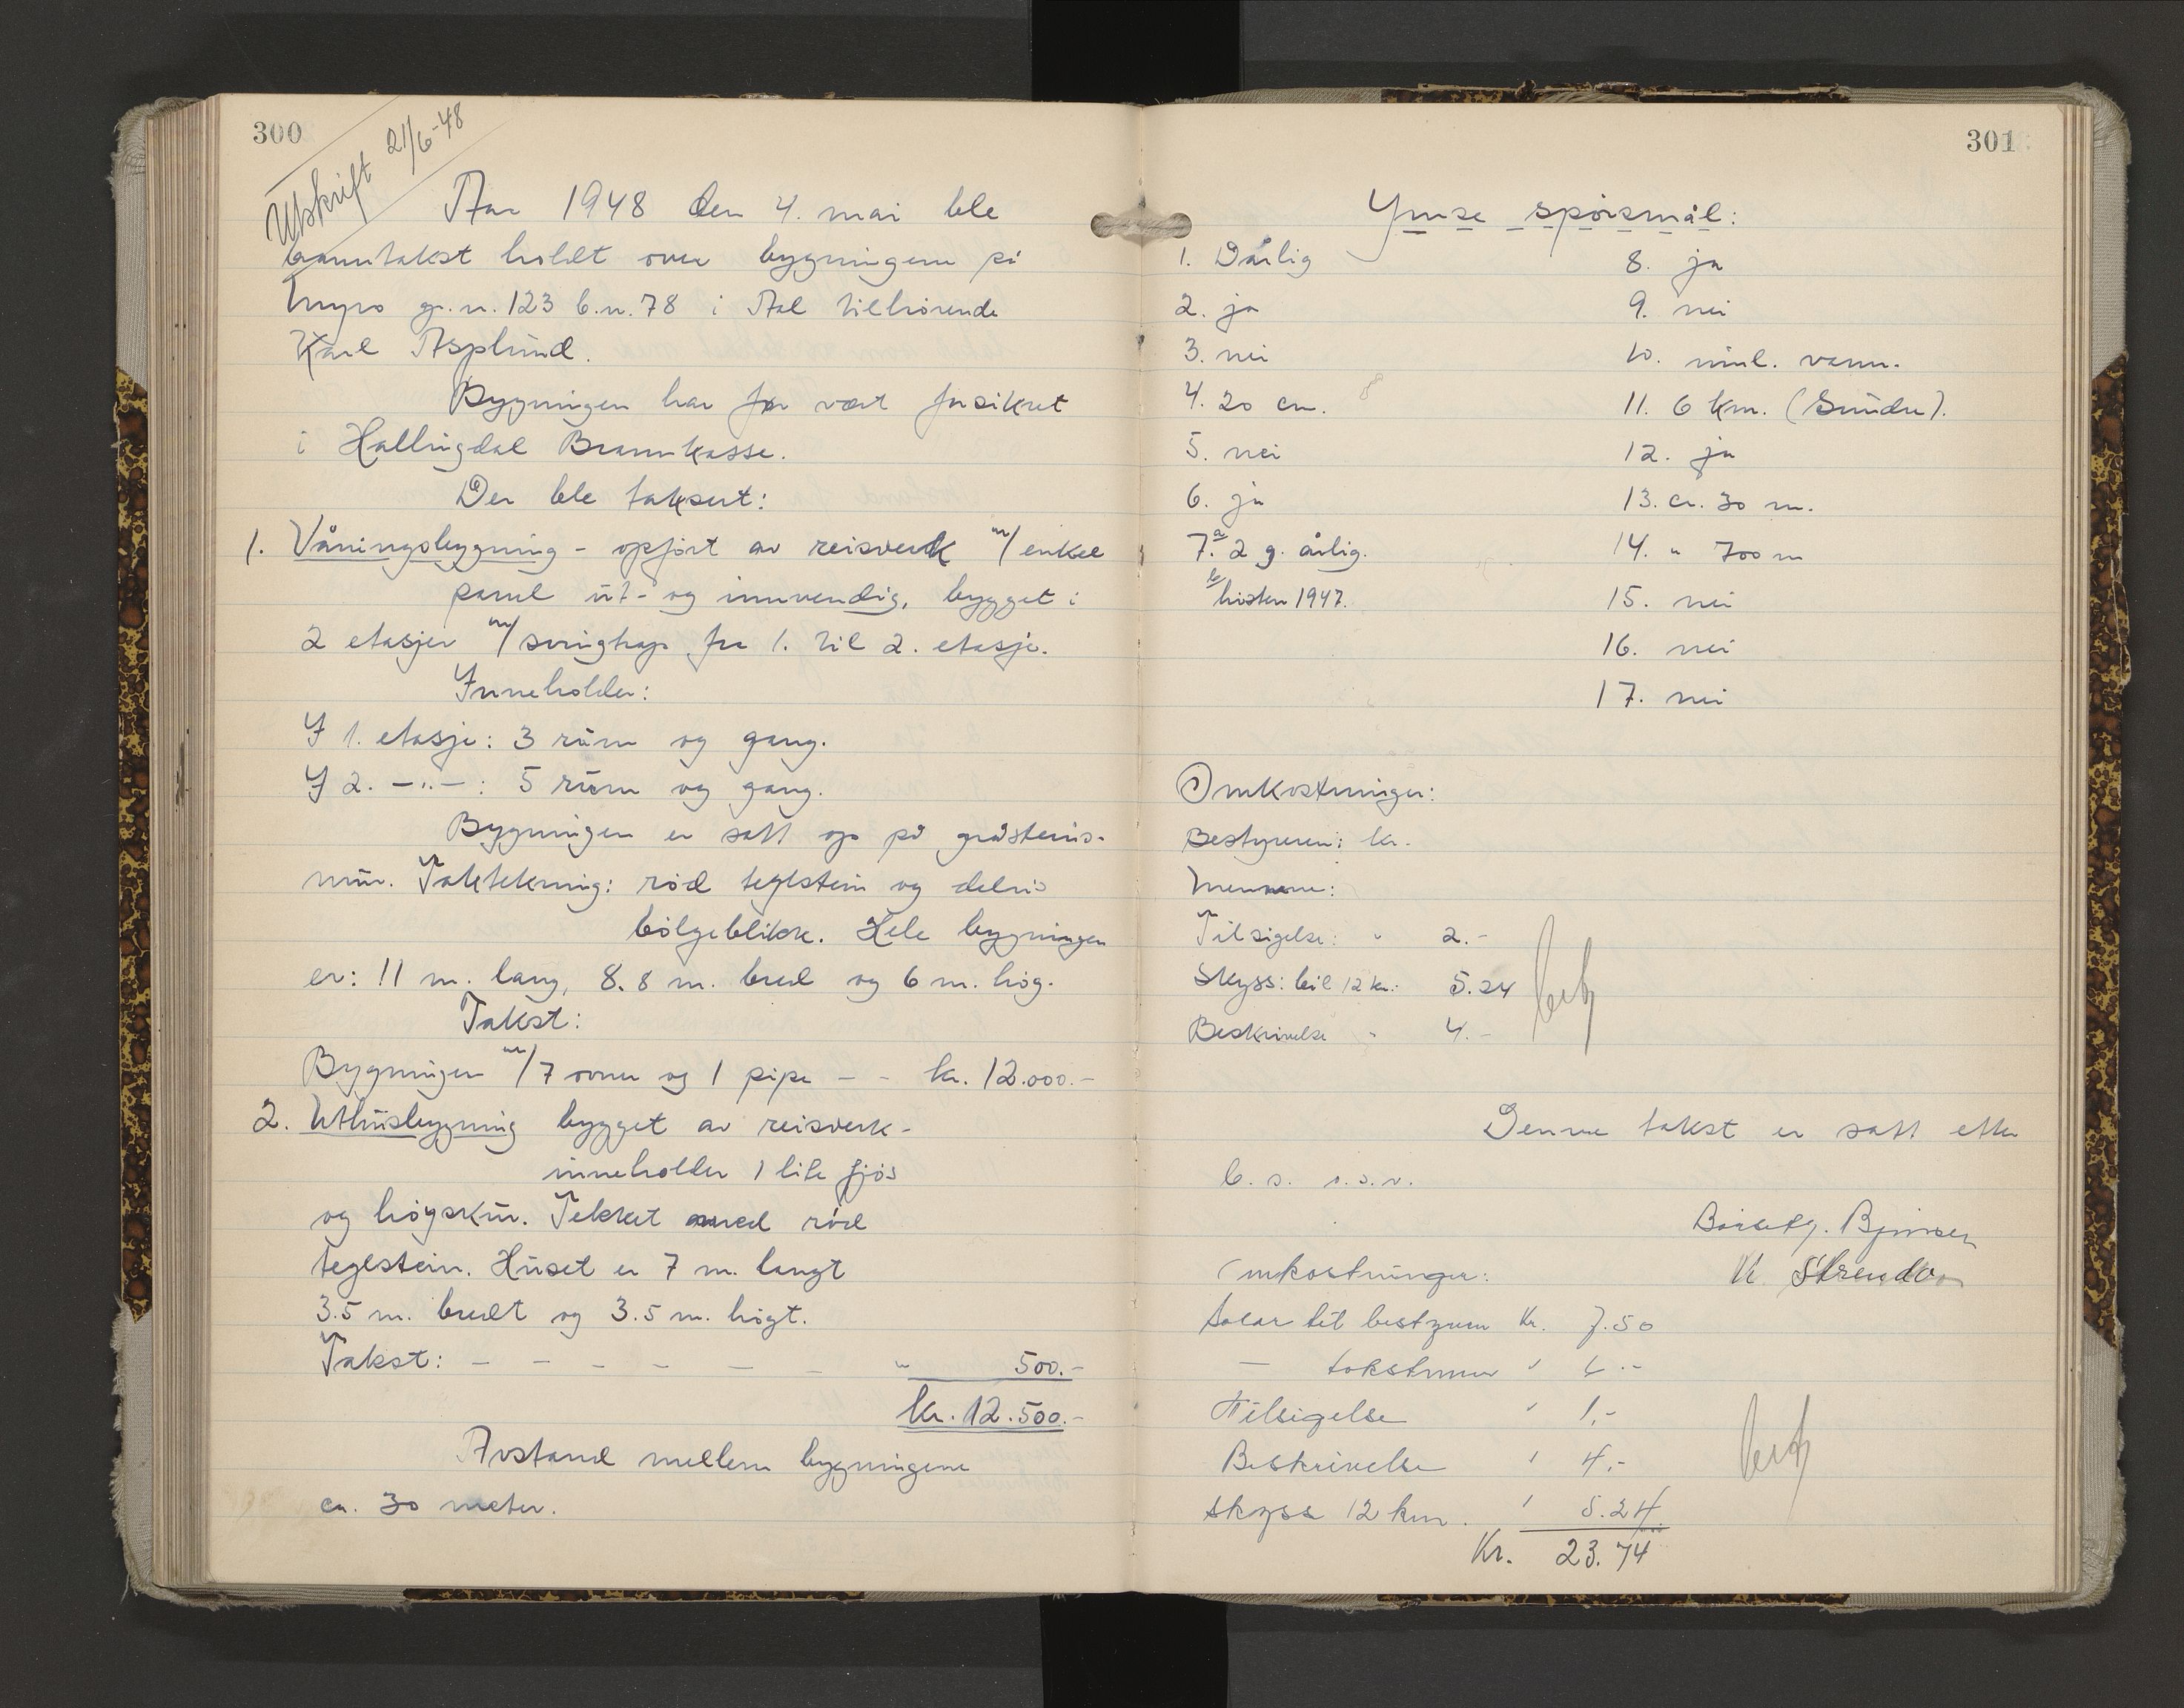 300
Utskrift 21/6-48
Aar 1948 den 4. mai ble
branntakst holdt over bygningene på
Myro gr.n. 123 b.n. 78 i Aal tilhörende
Karl Asplund.
Bygningen har för vært forsikret
i Hallingdal Brannkasse.
Der ble taksert:
1. Våningsbygning - opfört av reisverk m/enkel
panel ut- og innvendig, bygget i
2 etasjer m/svingtrap fra 1. til 2. etasje.
Inneholder:
I 1. etasje: 3 rum og gang.
I 2. -"- : 5 rum og gang.
Bygningen er satt op på gråsteins-
mur. Taktekning: röd teglstein og delvis
bölgeblikk. Hele bygningen
er: 11 m. lang, 8.8 m. bred og 6 m. hög.
Takst:
Bygningen m/7 ovner og 1 pipe - - kr. 12.000.-
2. Uthusbygning bygget av reisverk-
inneholder 1 lite fjös
og höyskur. Tekket med röd
teglstein. Huset er 7 m. langt
3.5 m. bredt og 3.5 m. högt.
Takst: - - - - - - " 500.-
kr. 12.500.-
Avstand mellem bygningene
ca. 30 meter.
301
Ymse spörsmål:
1. Dårlig
2. ja
3. nei
4. 20 cm.
5. nei
6. ja
7. a 2 g. årlig.
b hösten 1947.
8. ja
9. nei
10. innl. vann.
11. 6 km. (Sundre).
12. ja
13. ca. 30 m.
14. " 700 m
15. nei
16. nei
17. nei
Omkostninger:
Bestyreren: kr.
Mennene:
Tilsigelse: " 2.-
Skyss: bil 12 km: 5.24
Beskrivelse " 4.-
Denne takst er satt etter
b. s. o.s.v.
K Strendo
Omkostninger:
Salar til bestyrer Kr. 7.50
— takstmenn " 6.-
Tilsigelse " 1,-
Beskrivelse " 4.-
Skyss 12 km. " 5.24
Kr. 23.74